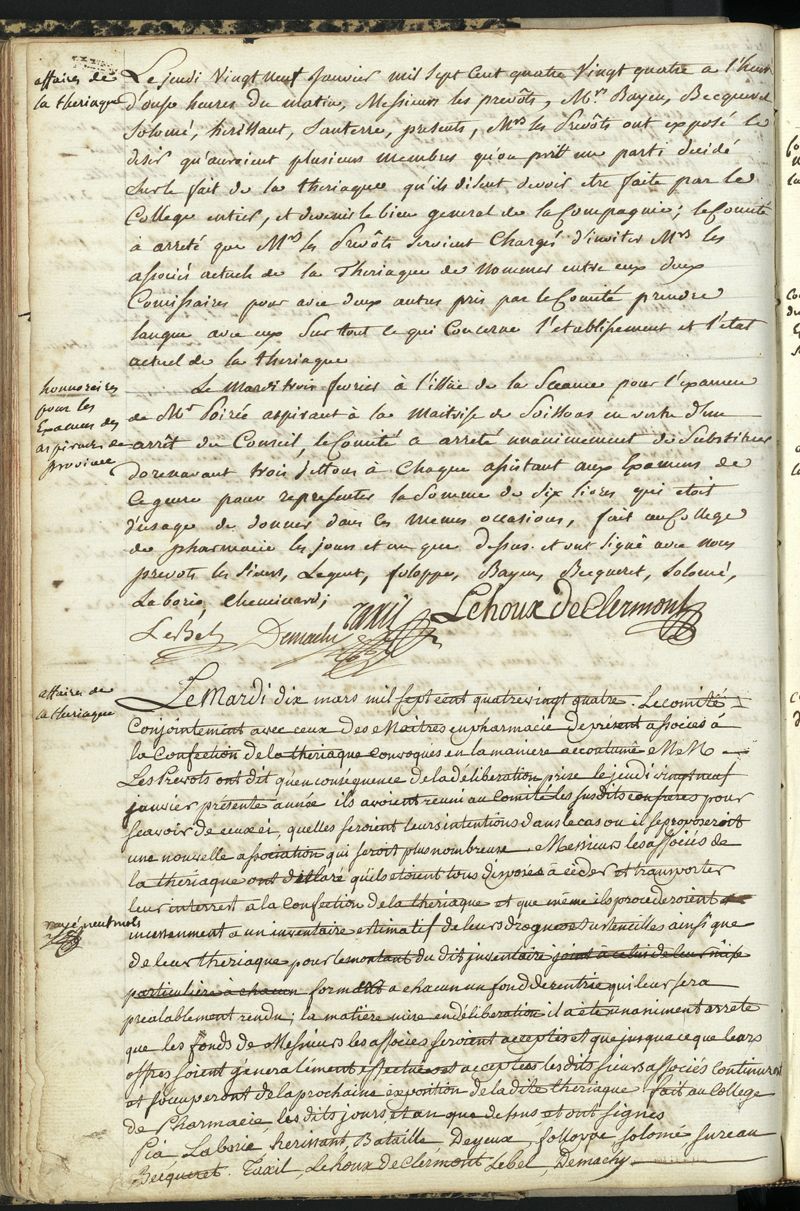 affaires de
la theriaque
Le jeudi Vingt neuf Janvier mil Sept Cent quatre Vingt quatre a l'heure
d'onze heures du matin, Messieurs les prevôts, Mrs Bayen, Becqueret
Solomé, herissant, Santerre, presents, Mrs les Prevôts ont exposé le
desir qu'auroient plusieurs membres qu'on prît un parti decidé
Sur le fait de la theriaque qu'ils disent devoir etre faite par le
College entier, et devenir le bien general de la Compagnie; le Comité
à arreté que Mrs les Prevôts seroient Chargés d'inviter Mrs les
associés actuels de la Theriaque de Nommer entre eux deux
Comissaires pour avec deux autres pris par le Comité prendre
langue avec eux Sur tout ce qui Concerne l'etablissement et l'etat
actuel de la theriaque
honnoraires
pour les
Examens des
aspirants de
province
Le Mardi trois fevrier à l'issüe de la Seance pour l'examen
de Mr Poirée aspirant à la Maitrise de Soissons en vertu d'un
arrêt du Conseil, le Comité à arreté unanimement de Substituer
dorenavant trois jettons à Chaque assistant aux Examens de
Ce genre pour representer la Somme de Six livres qui etoit
d'usage de donner dans les memes occasions, fait au College
de pharmacie les jours et an que dessus. et ont signé avec nous
prevots les sieurs, Legent, foloppe, Bayen, Becqueret, Solomé,
Laborie, Cheminard;
LeBel Demachy Taxil Lehoux de Clermont
affaires de
la theriaque
Le Mardi dix mars mil sept cent quatre vingt quatre. Le comité
Conjointement avec ceux des Maitres en pharmacie de present associés à
la Confection de la theriaque convoqués en la maniere accoutumé MM
Les Prevots ont dit qu'en consequence de la déliberation prise le jeudi vingt neuf
janvier presente année ils avoient reuni au Comité les susdits confreres pour
scavoir de ceux ci, quelles seroient leurs intentions dans le cas ou il se proposeroit
une nouvelle association qui seroit plus nombreuse Messieurs les associés de
la theriaque ont déclaré qu'ils etoient tous disposés à ceder et transporter
leur interrest à la Confection de la theriaque et que même ils procederoient
incessenment a un inventaire estimatif de leurs drogues et ustenciles ainsi que
rayé neuf mots
de leur theriaque pour le montant du dit inventaire joint à celui de leur mise
particuliere à chacun formant a chacun un fond de rentrée qui leur sera
prealablement rendu; la matiere mise en déliberation il a été unaniment arreté
que les fonds de Messieurs les associés seroient acceptés et que jusqua ce que leurs
offres soient generalement effectués et acceptées les dits sieurs associés continuront
et s'occuperont de la prochaine exposition de la dite theriaque fait au College
de Pharmacie, les dits jours et an que dessus et ont signés
Pia Laborie, herissant, Bataille, Deyeux, folloppe, solomé, sureau
Becqueret. Taxil, Lehoux de Clermont Lebel, Demachy